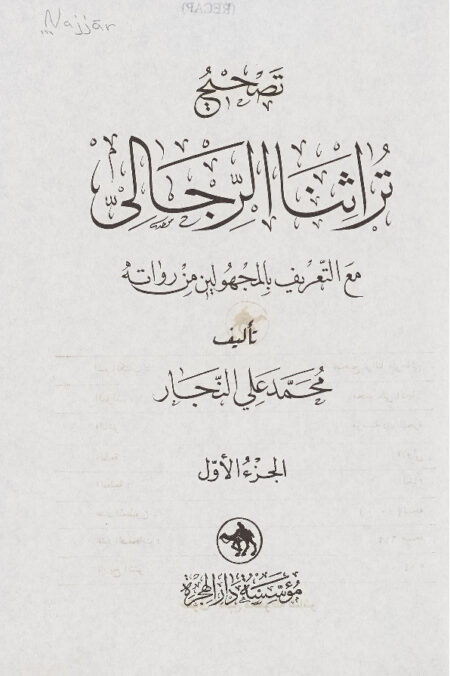 (RECAP)
Najjār
تَصْحِيحُ
تُرَاثِنَا الرِّجَالِيِّ
مَعَ التَّعْرِيفِ بِالْمَجْهُولِينَ مِنْ رُوَاتِهِ
تأليف
مُحَمَّد عَلِي النَّجَّار
الجُزْءُ الأَوَّل
مُؤَسَّسَةُ دَارِ الهِجْرَةِ